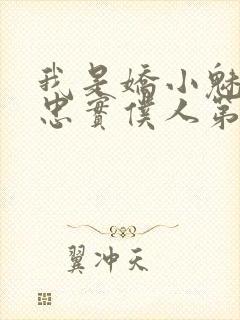 我是嬌小魅
忠實僕人第
翼冲天